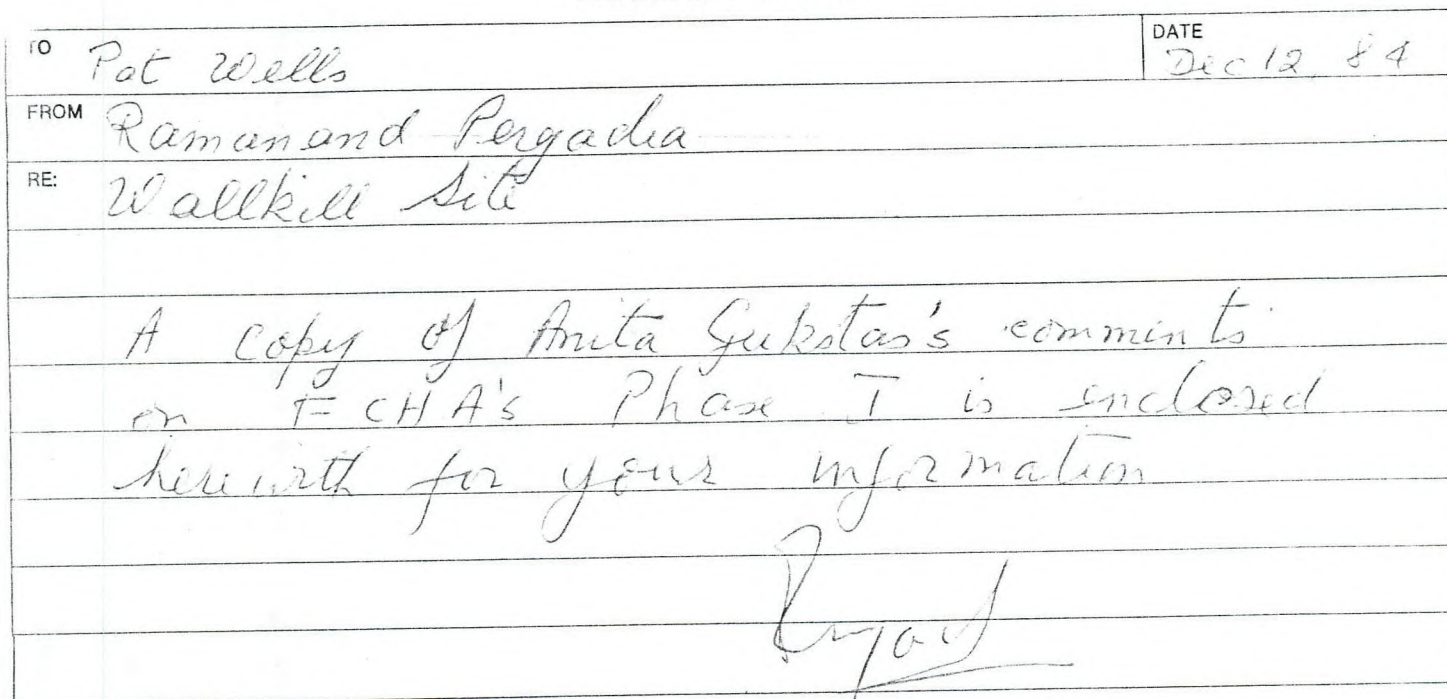 TO Pat Wells
DATE Dec 12, 84
FROM Ramanand Pergadia
RE: Wallkill Site
A copy of Anita Gukstas's comments
on FCHA's Phase I is enclosed
herewith for your information